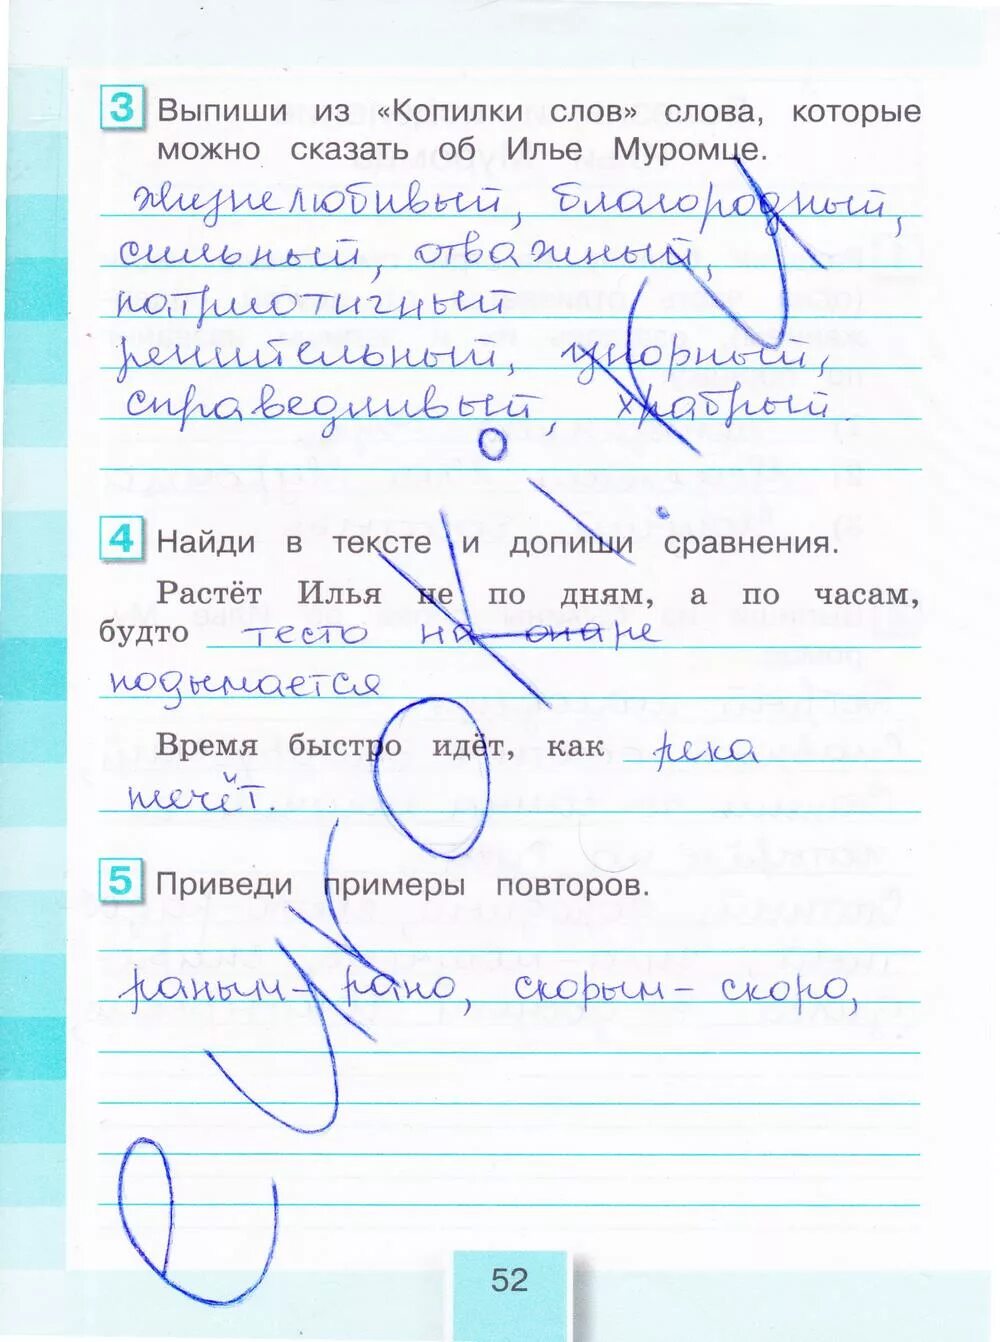 3 Выпиши из «Копилки слов» слова, которые
можно сказать об Илье Муромце.
жизнелюбивый, благородный,
сильный, отважный,
патриотичный
решительный, упорный,
справедливый, храбрый.
4 Найди в тексте и допиши сравнения.
Растёт Илья не по дням, а по часам,
будто тесто на опаре
подымается
Время быстро идёт, как река
течёт.
5 Приведи примеры повторов.
раным-рано, скорым-скоро,
52